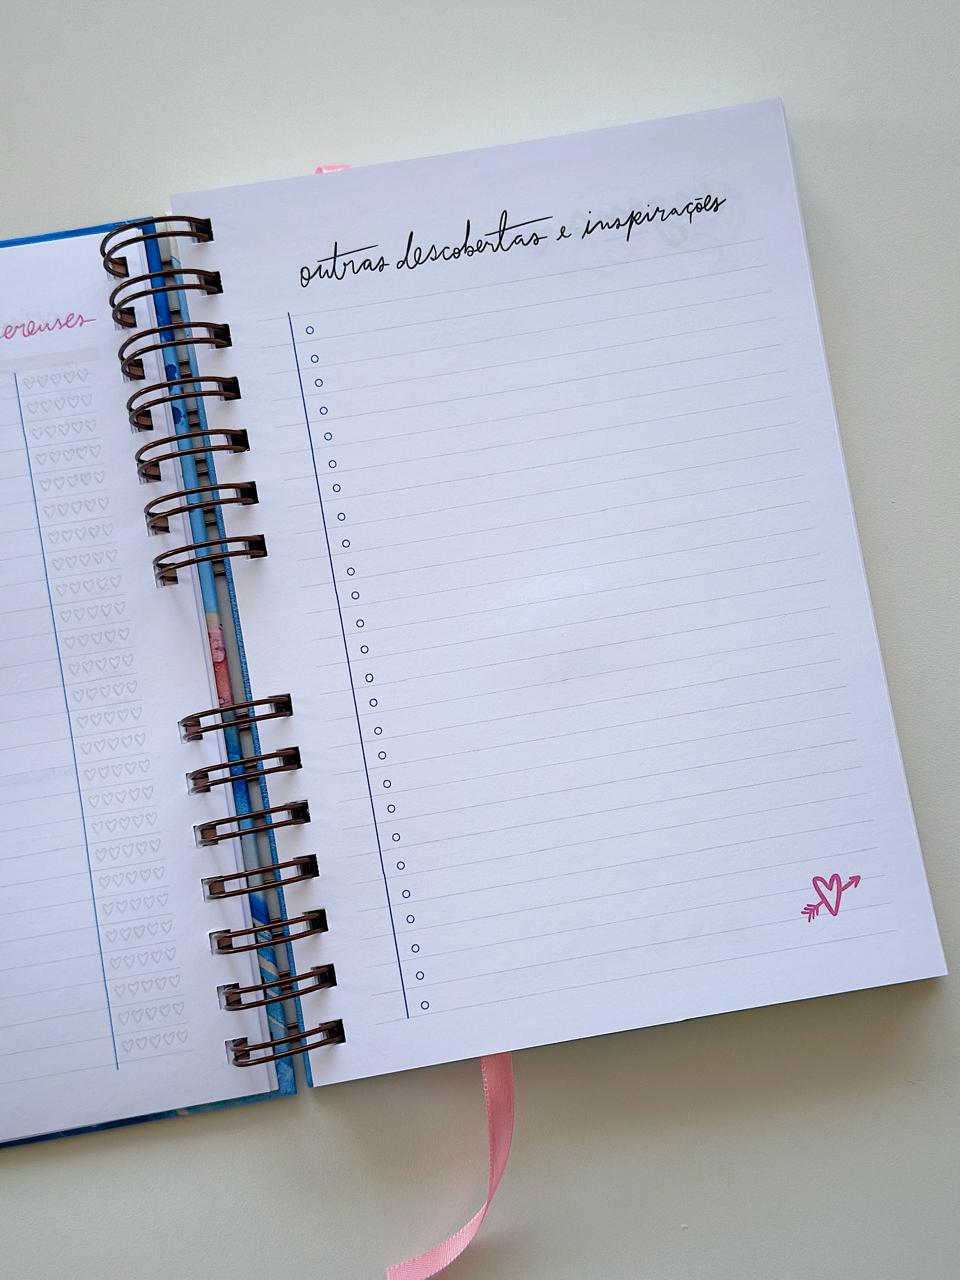 outras descobertas e inspirações